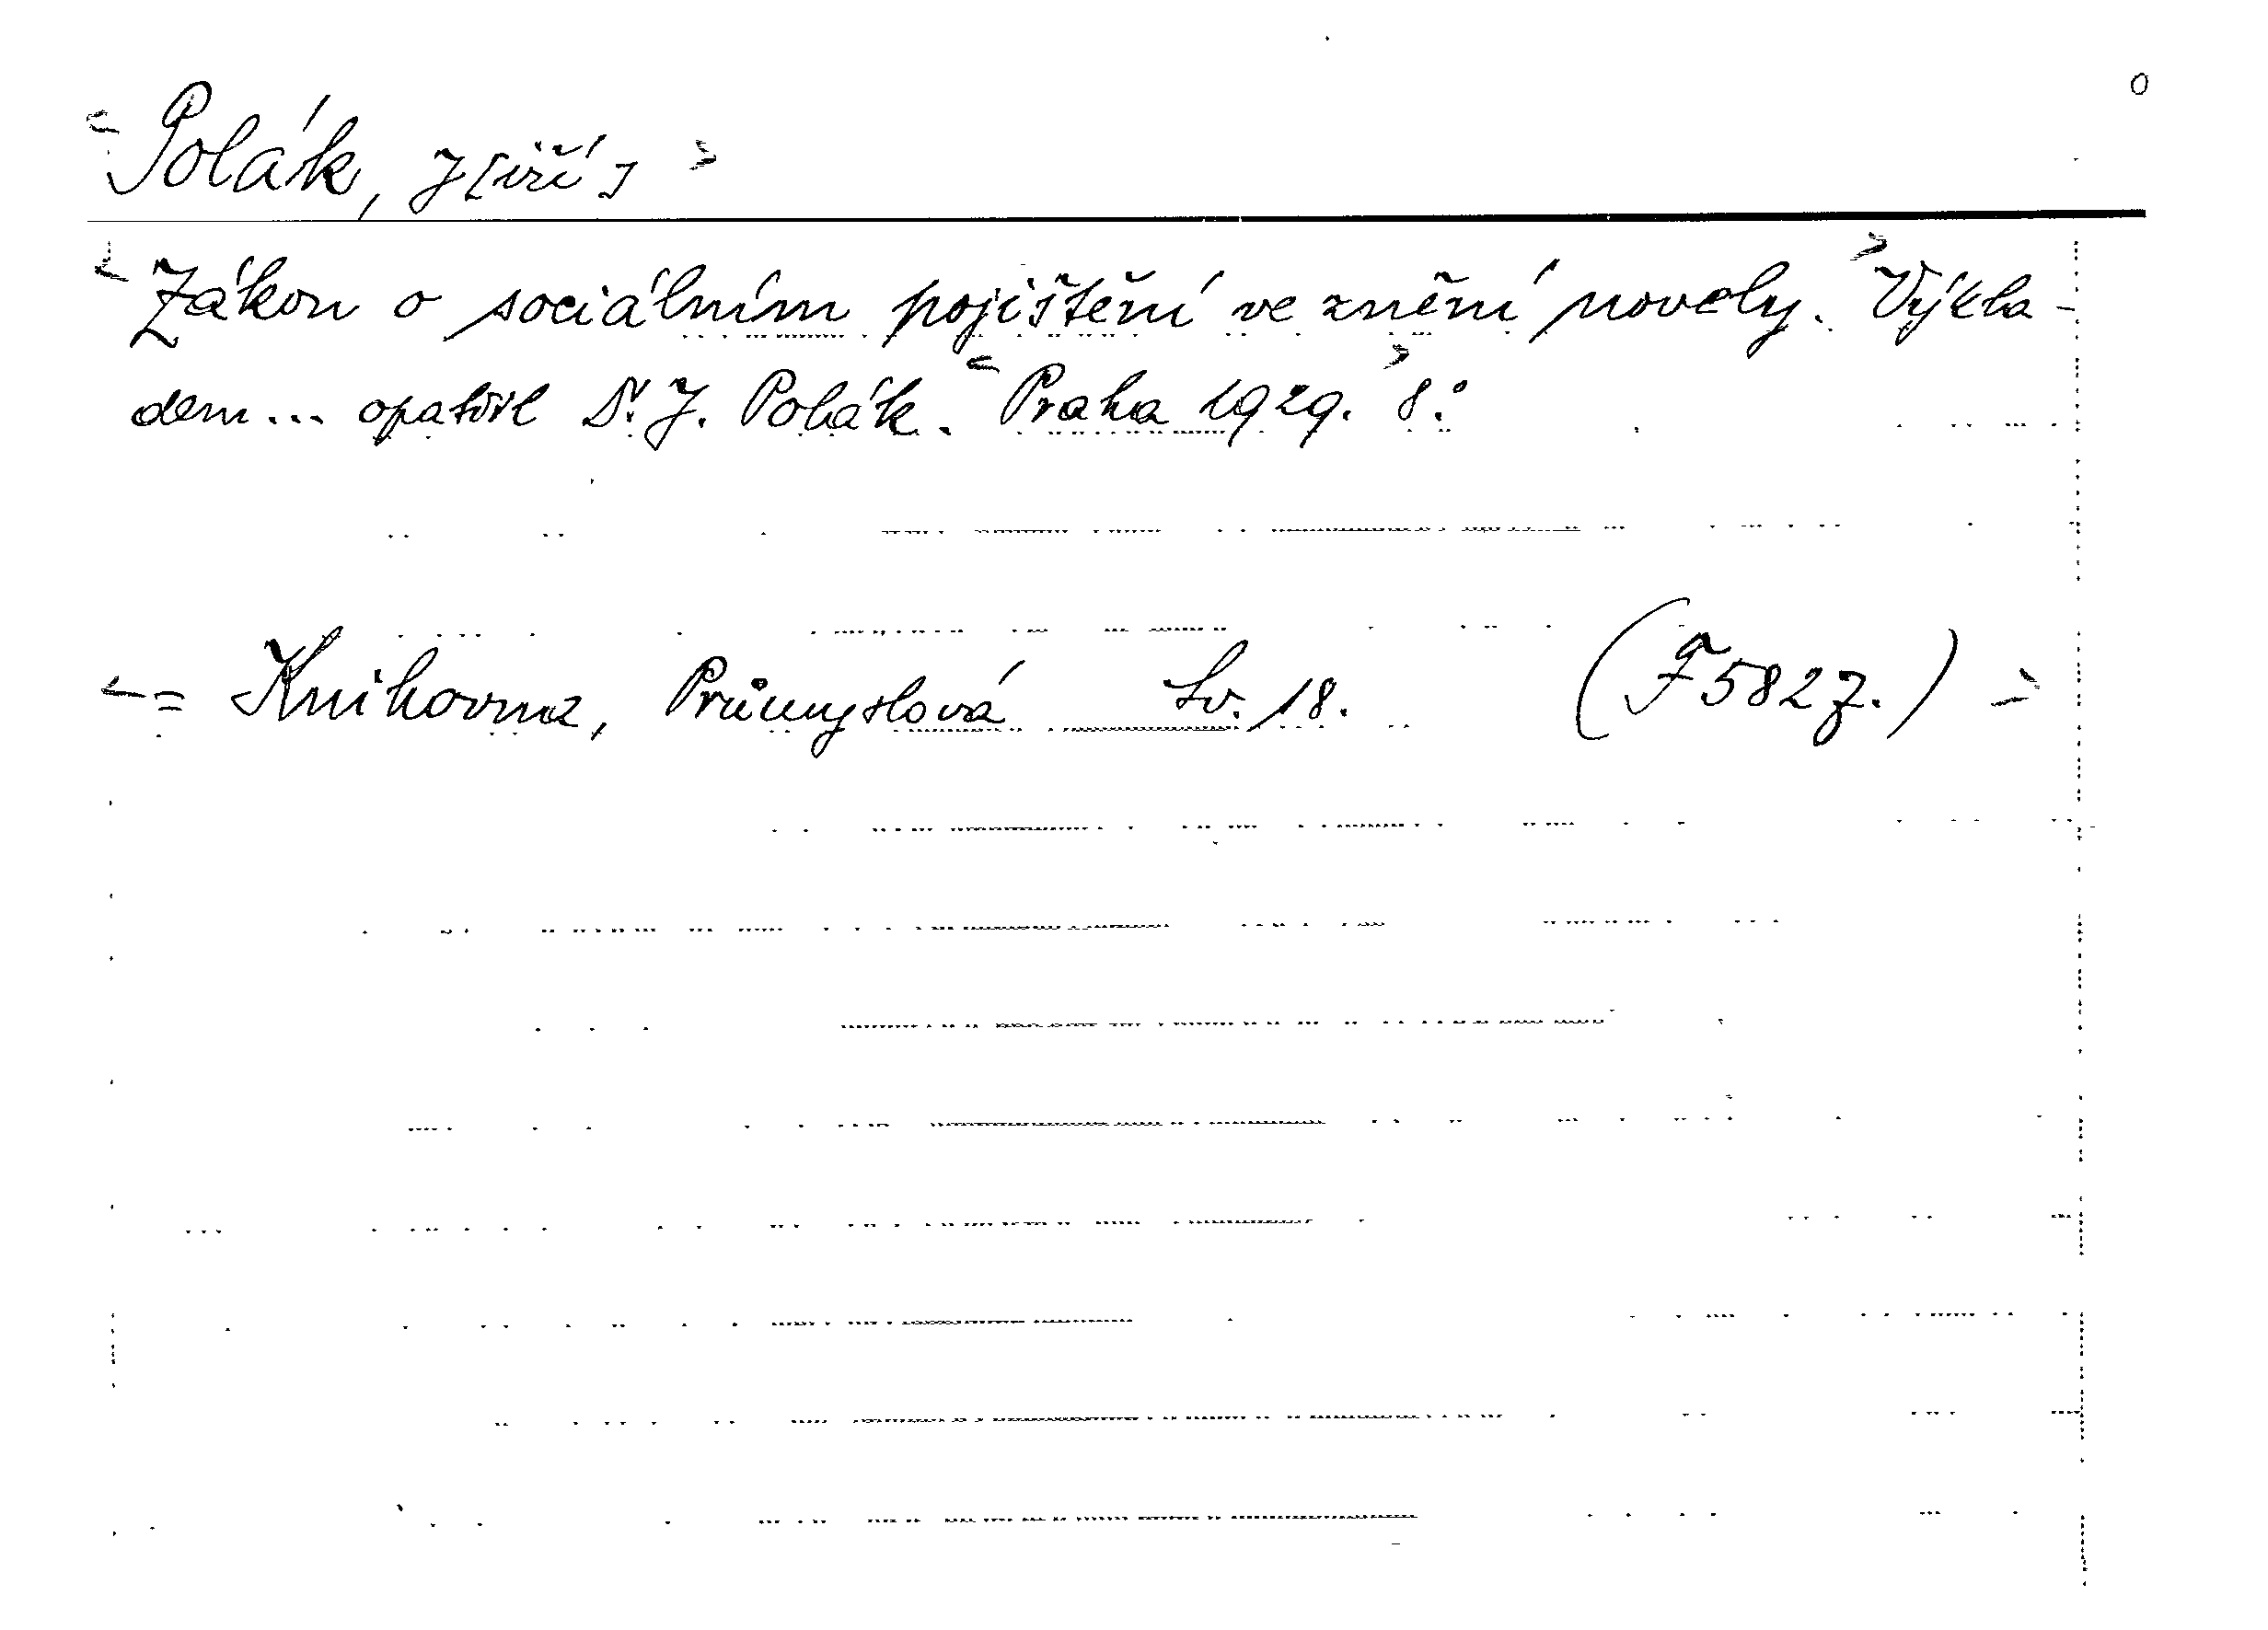 0
< Polák, J[iří] >
< Zákon o sociálním pojištění ve znění novely. > Výkla-
dem... opatřil Dr. J. Polák. < Praha 1929. > 8.°
< = Knihovna, Průmyslová Sv. 18. (F 582 z.) = >